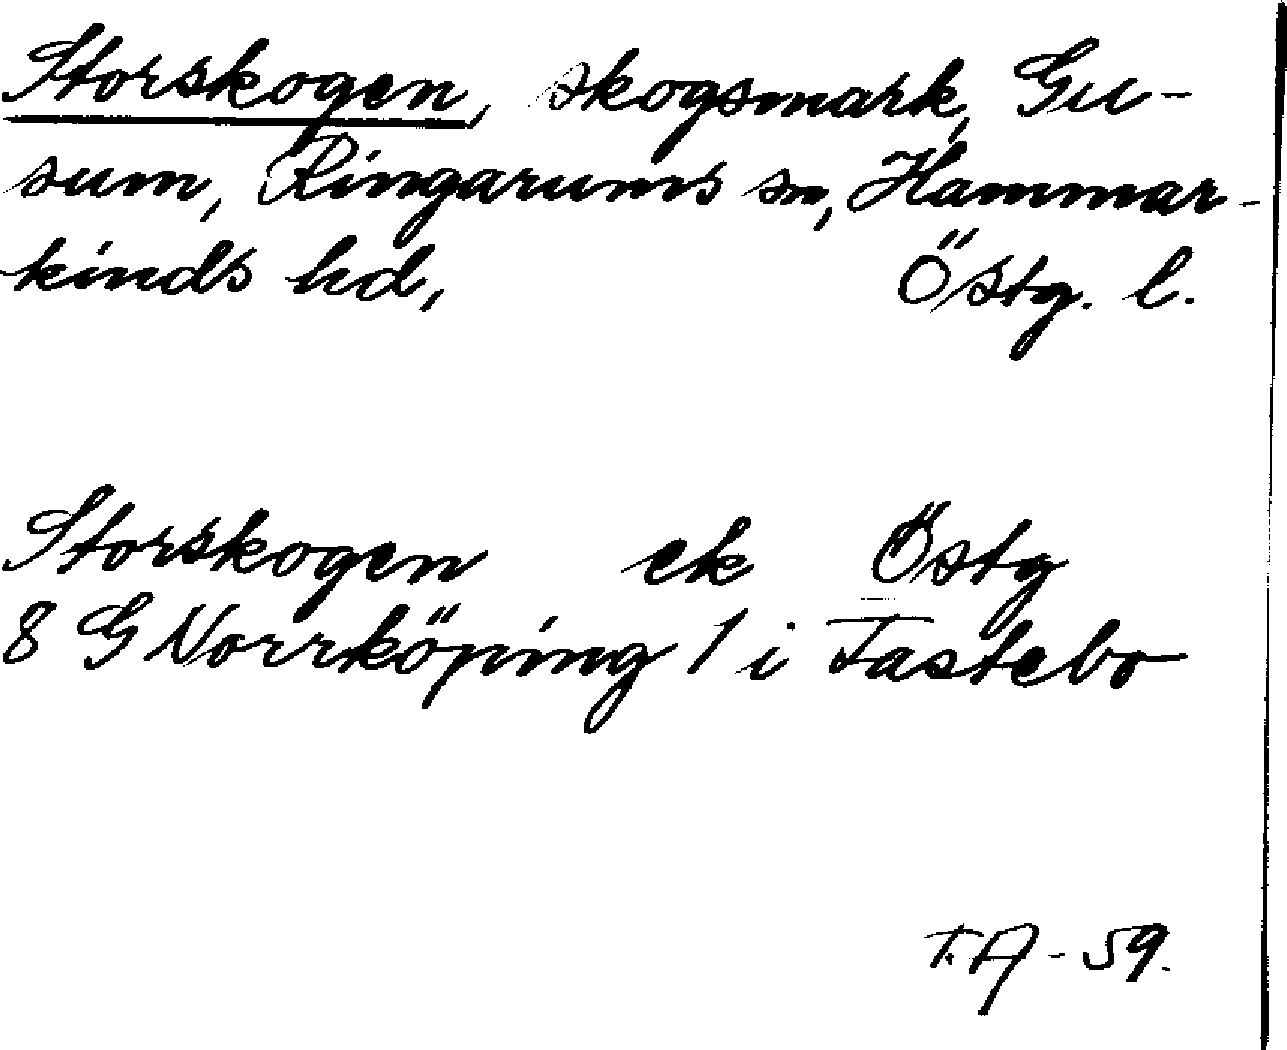 Storskogen, skogsmark, Gu-
sum, Ringarums sn, Hammar-
kinds hd, Östg. l.
Storskogen ek Östg
8 G Norrköping 1 i Fastebo
T.A-59.